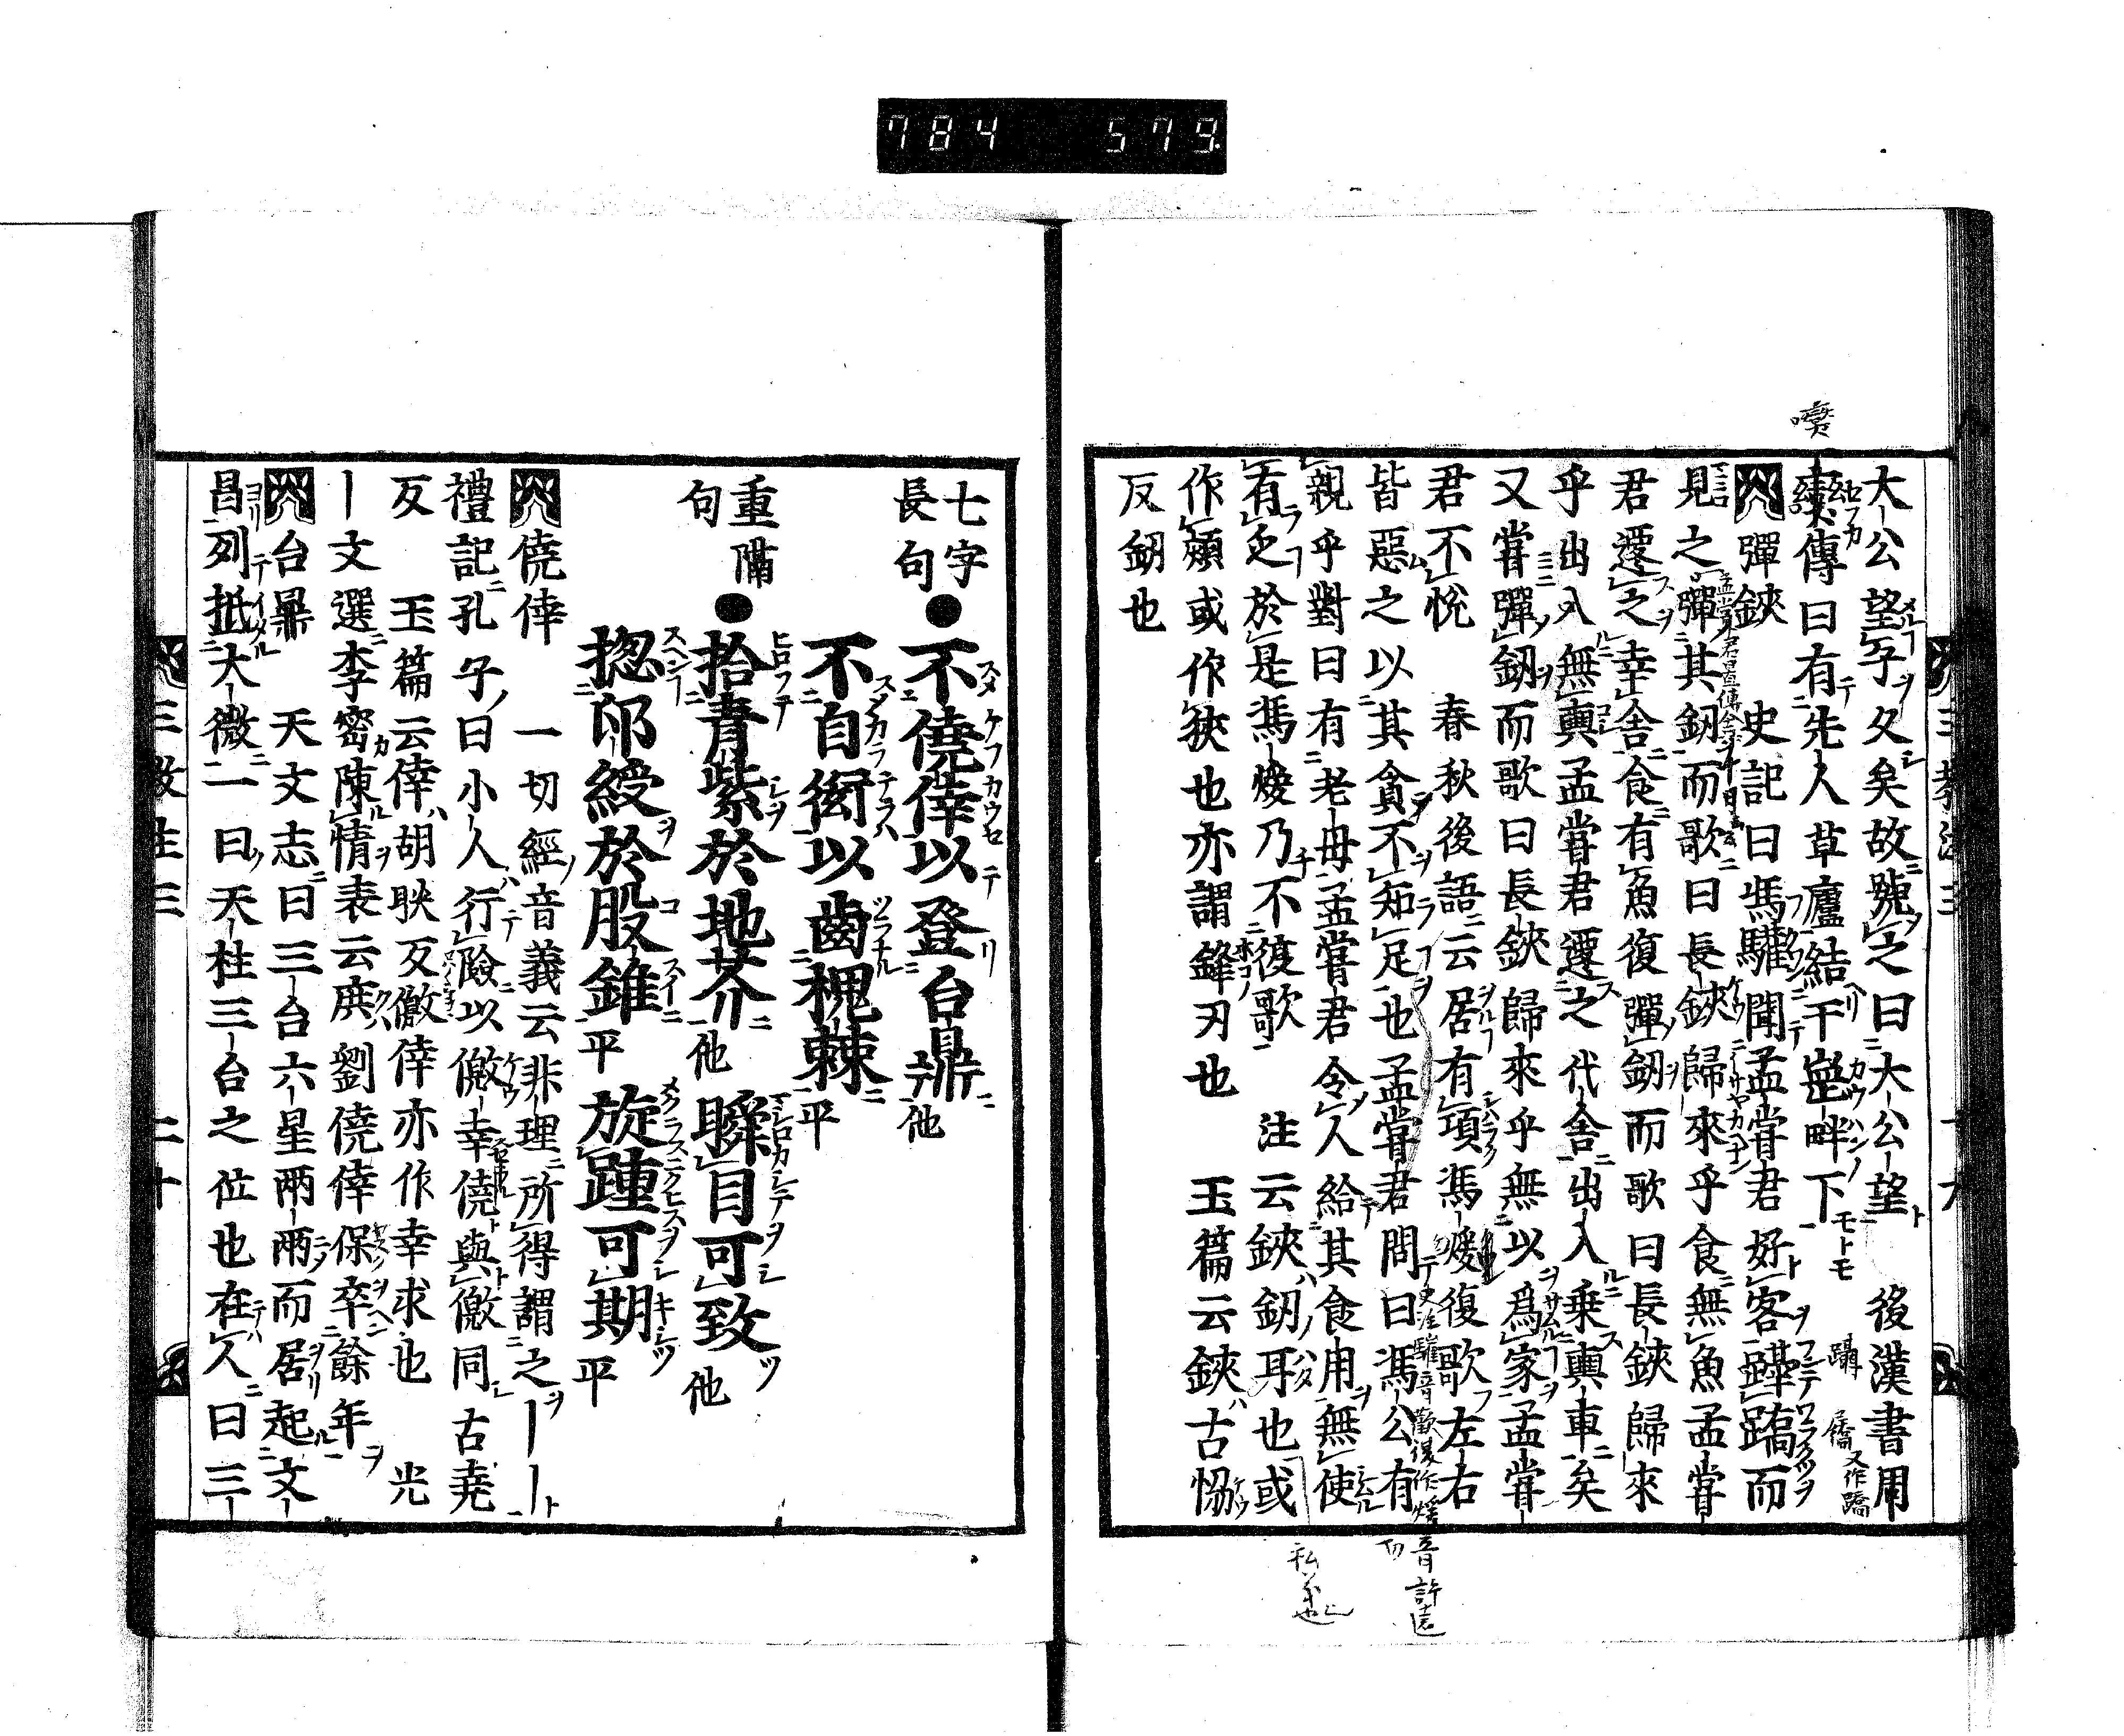 784 579
大公望子久矣故號之曰大公望 後漢書周
傳曰有先人草廬結于壟畔下
彈鋏 史記曰馮驩聞孟甞君好客躡蹻而
見之彈其釼而歌曰長鋏歸來乎食無魚孟甞
君遷之幸舎食有魚復彈釼而歌曰長鋏歸來
乎出入無輿孟甞君遷之代舎出入乗輿車矣
又甞彈釼而歌曰長鋏歸來乎無以爲家孟甞
君不悅 春秋後語云居有項馮煖復歌左右
皆惡之以其貪不知足也孟甞君問曰馮公有
親乎對曰有老母孟甞君令人給其食用無使
有乏於是馮煖乃不復歌 注云鋏釼耳也或
作頰或作狹也亦謂鋒刃也 玉篇云鋏古恊
反釼也
七字
長句
●不僥倖以登台鼎他
不自衒以齒槐棘平
重隔
句
●拾青紫於地芥他 瞬目可致他
揔印綬於股錐平 旋踵可期平
僥倖 一切經音義云非理所得謂之〡〡
禮記孔子曰小人行險以儌幸僥與儌同古堯
反 玉篇云倖胡耿反儌倖亦作幸求也 光
〡文選李密陳情表云庶劉僥倖保卒餘年
台鼎 天文志曰三台六星兩兩而居起文
昌列抵大微一曰天柱三台之位也在人曰三